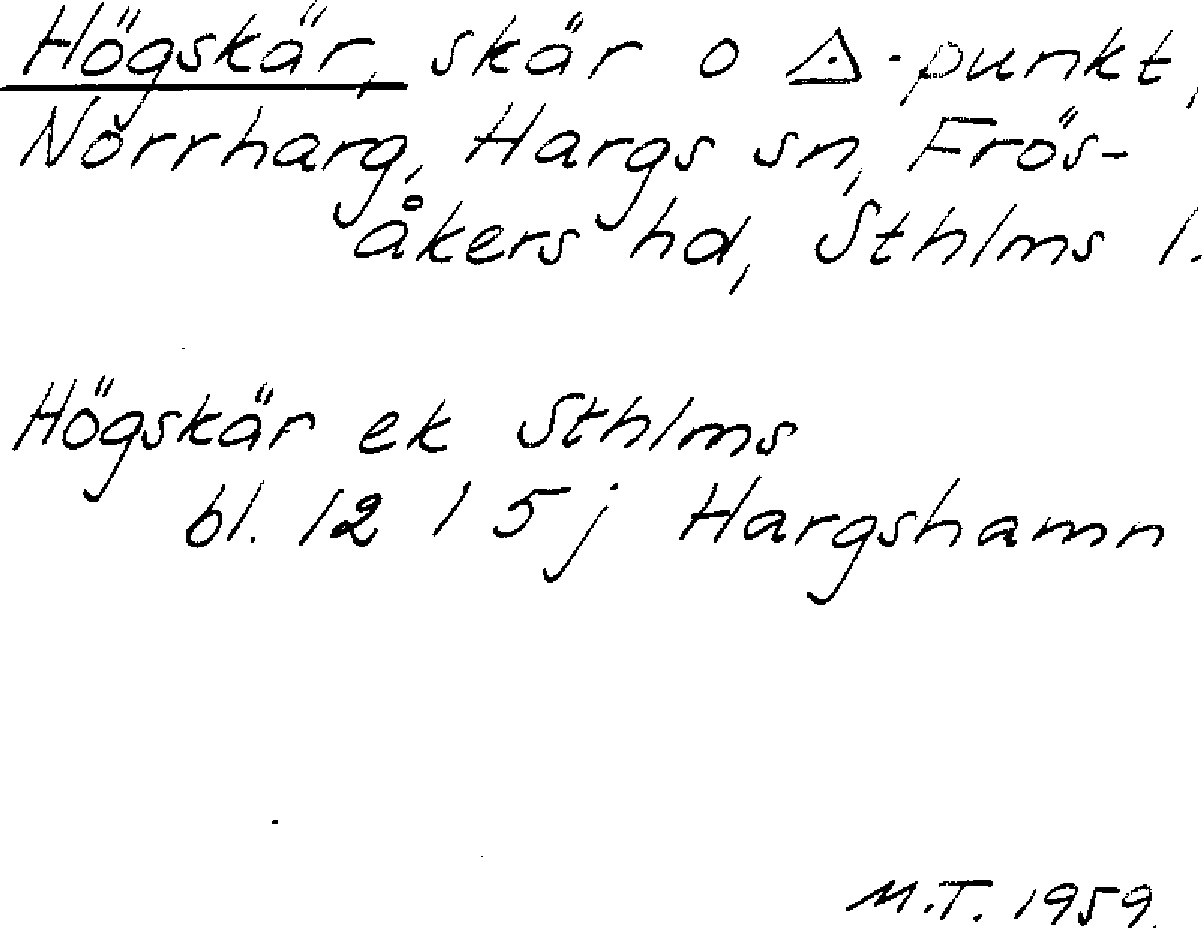 Högskär, skär o △-punkt,
Norrharg, Hargs sn, Frös-
åkers hd, Sthlms l.
Högskär ek Sthlms
bl. 12 I 5 j Hargshamn
M.T. 1959.